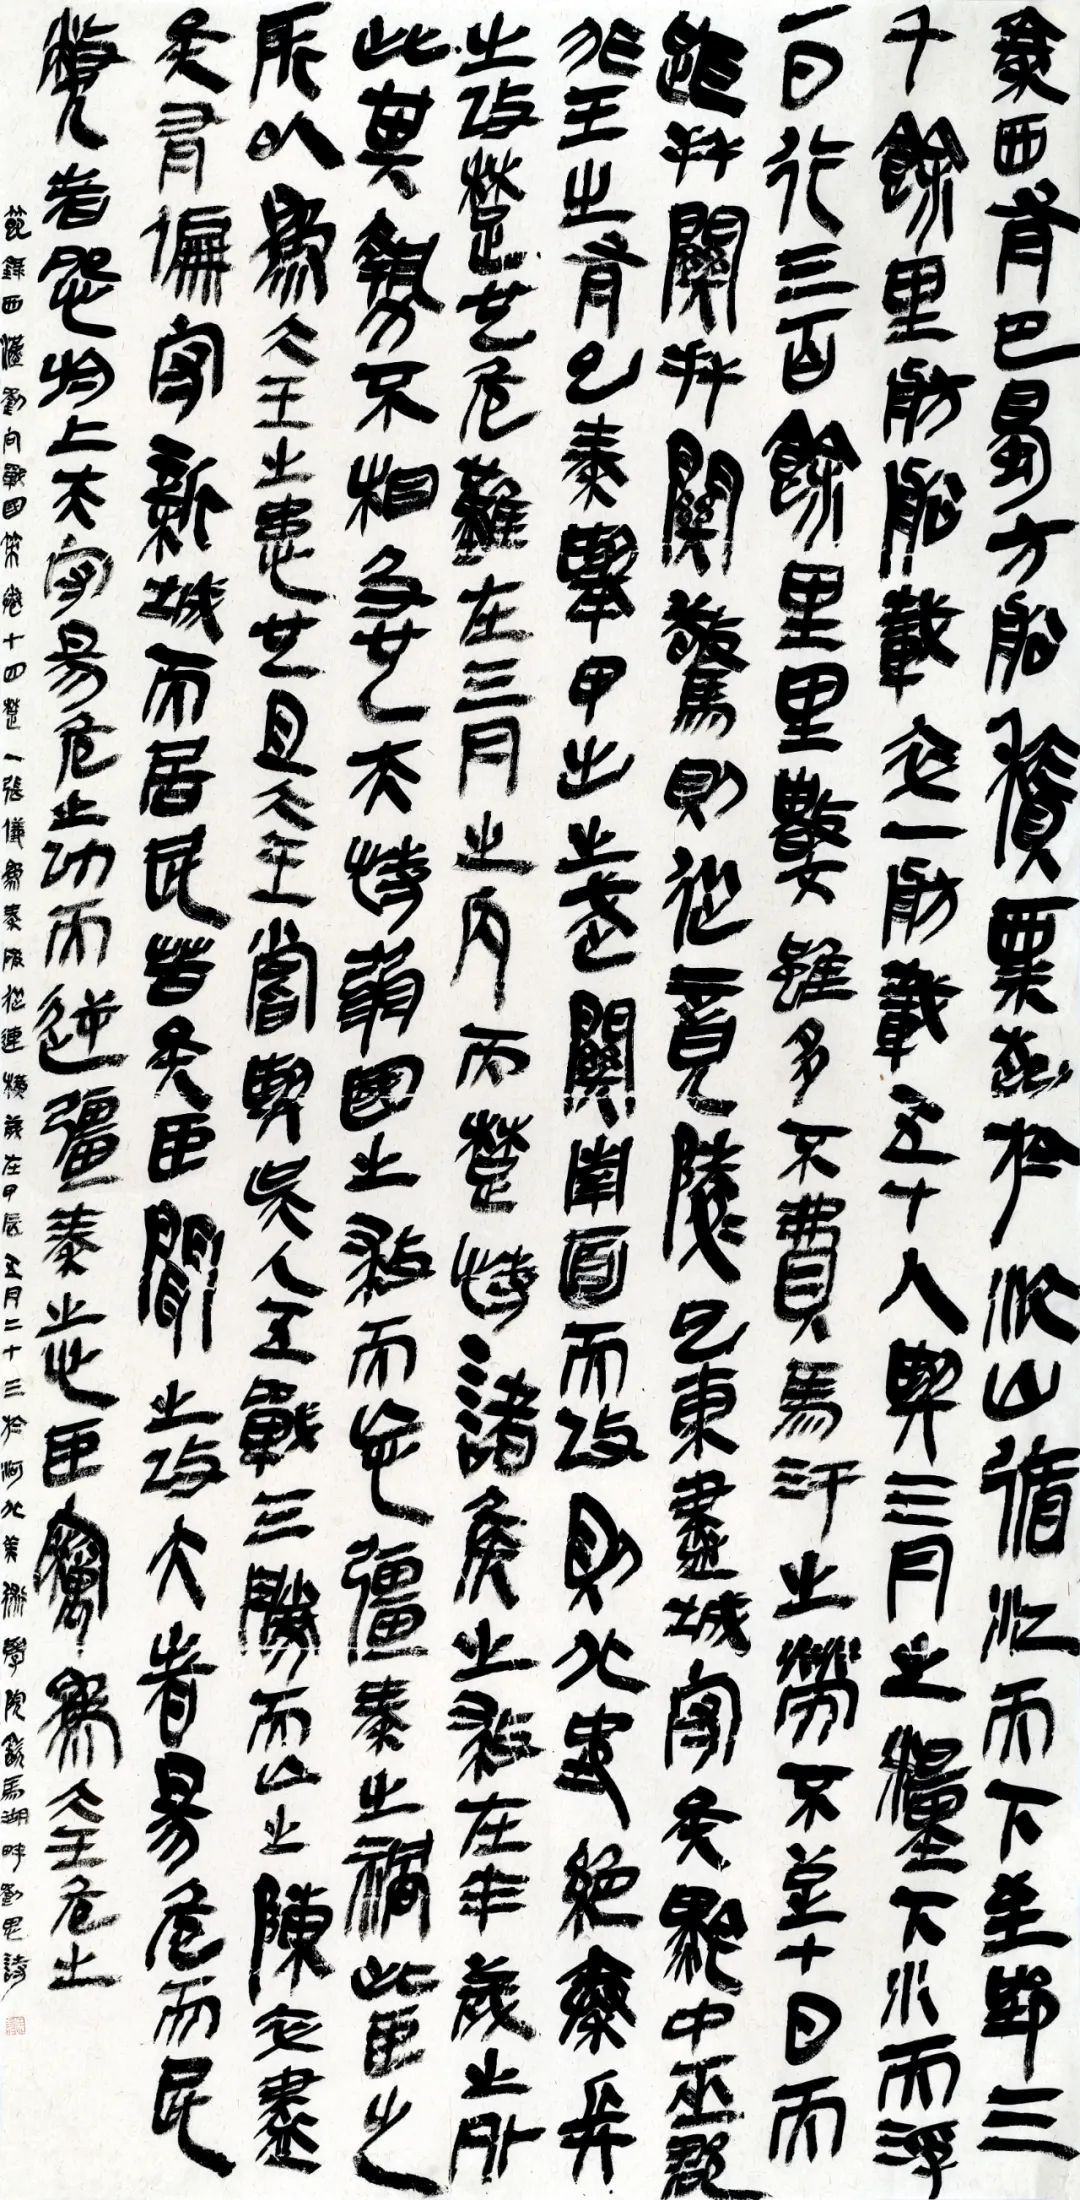 秦西有巴蜀方船積粟起於汶山循江而下至郢三
千餘里舫船載卒一舫載五十人與三月之糧下水而浮
一日行三百餘里里數雖多不費馬汗之勞不至十日而
距扞關扞關驚則從竟陵已東盡城守矣黔中巫郡
非王之有已秦舉甲出之武關南面而攻則北地絕秦兵
之攻楚也危難在三月之內而楚恃諸侯之救在半歲之外
此其勢不相及也夫恃弱國之救而忘彊秦之禍此臣之
所以為大王之患也且大王嘗與吳人五戰三勝而亡之陳卒盡
矣有偏守新城而居民苦矣臣聞之攻大者易危而民
弊者怨於上夫守易危之功而逆彊秦之心臣竊為大王危之
節錄西漢劉向戰國策卷十四楚一張儀為秦破從連橫歲在甲辰五月二十三於河北美術學院飲馬湖畔劉思詩